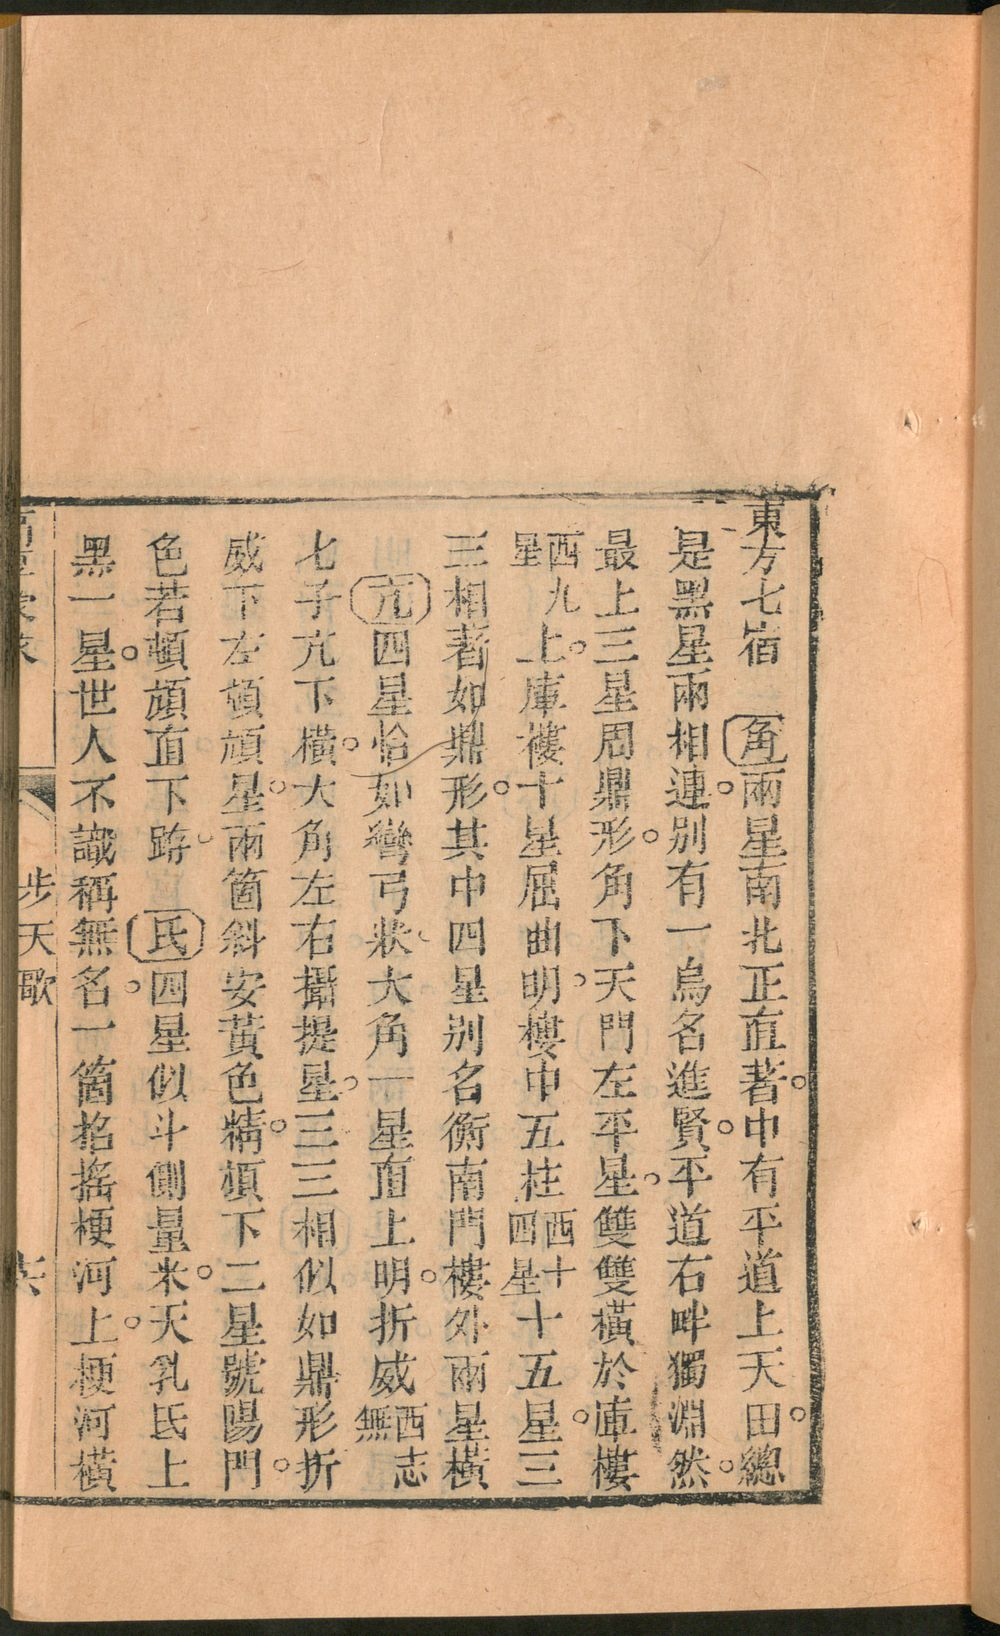 東方七宿　角兩星南北正直著中有平道上天田總
是黑星兩相連别有一烏名進賢平道右畔獨淵然
最上三星周鼎形角下天門左平星雙雙橫於庫樓
上庫樓十星屈曲明樓中五柱十五星三
西九星
西十四星
三相著如鼎形其中四星别名衡南門樓外兩星橫
亢四星恰如彎弓狀大角一星直上明折威
西志無
七子亢下橫大角左右攝提星三三相似如鼎形折
威下左頓頑星兩箇斜安黃色精頑下二星號陽門
色若頓頑直下蹲　氐四星似斗側量米天乳氐上
黑一星世人不識稱無名一箇招搖梗河上梗河橫
步天歌
六